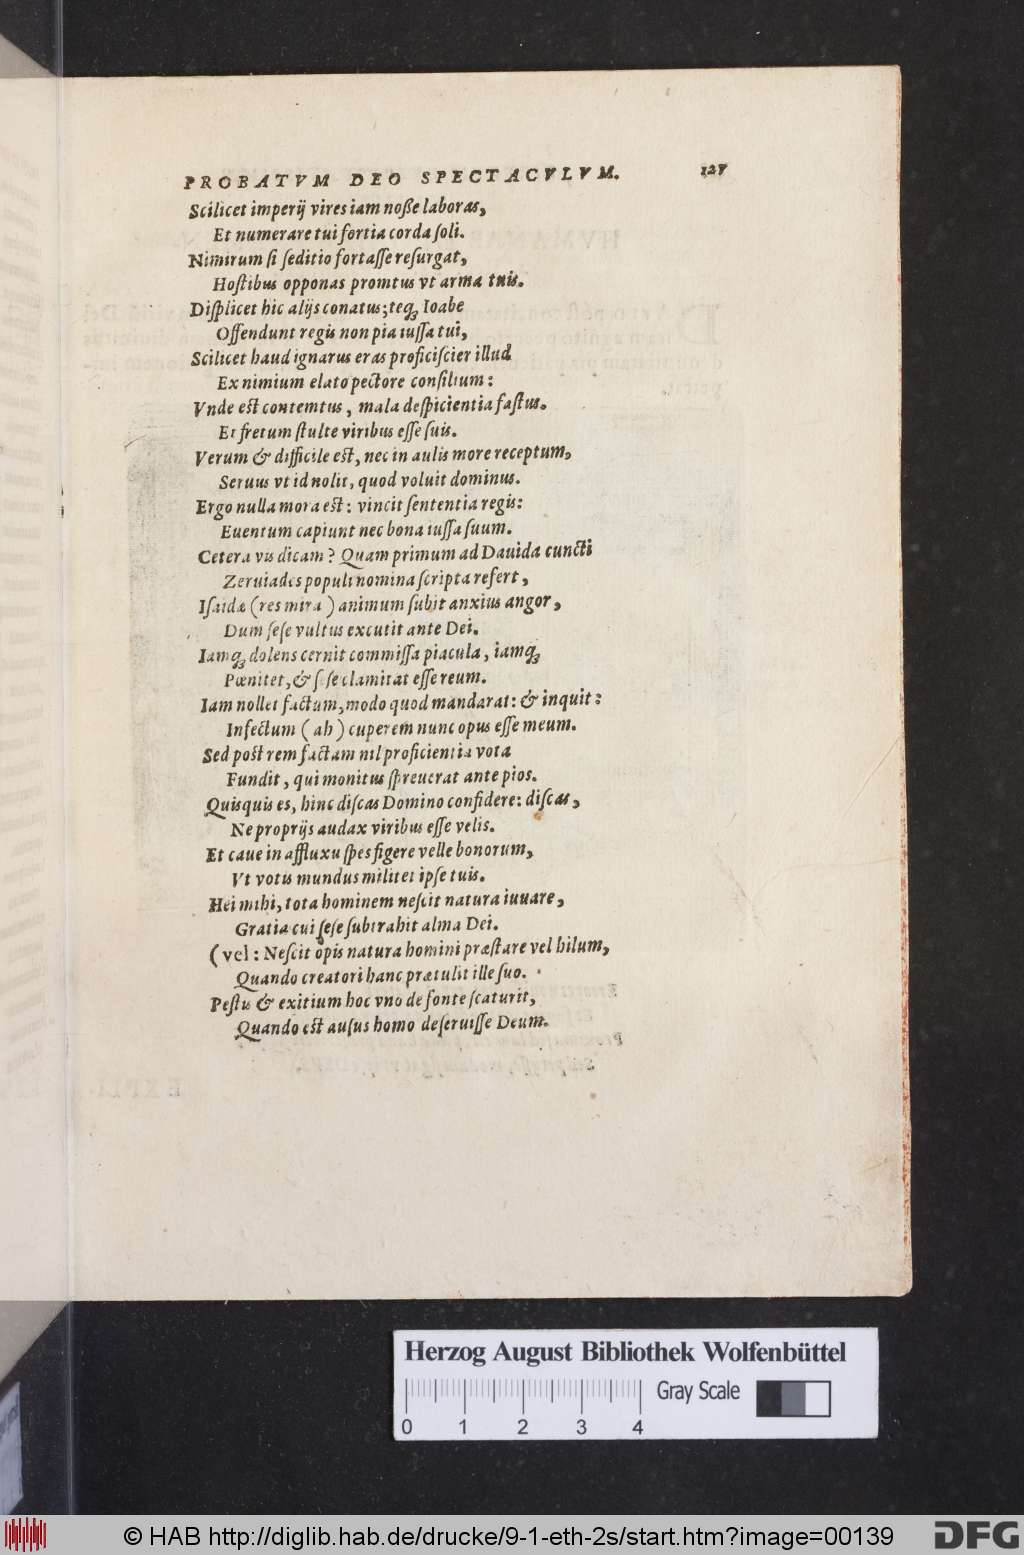 PROBATVM DEO SPECTACVLVM. 127
Scilicet imperij vires iam noße laboras,
Et numerare tui fortia corda ſoli.
Nimirum ſi ſeditio fortaſſe reſurgat,
Hoſtibus opponas promtus vt arma tuis.
Diſplicet hic alijs conatus; teq́ꝫ Ioabe
Offendunt regis non pia iuſſa tui,
Scilicet haud ignarus eras proficiſcier illud
Ex nimium elato pectore conſilium:
Vnde est contemtus, mala deſpicientia faſtus.
Et fretum ſtulte viribus eſſe ſuis.
Verum & difficile est, nec in aulis more receptum,
Seruus vt id nolit, quod voluit dominus.
Ergo nulla mora est: vincit ſententia regis:
Euentum capiunt nec bona iuſſa ſuum.
Cetera vis dicam? Quam primum ad Dauida cuncti
Zeruiades populi nomina ſcripta refert,
Iſaidæ (res mira) animum ſubit anxius angor,
Dum ſeſe vultus excutit ante Dei.
Iamq́ꝫ dolens cernit commiſſa piacula, iamq́ꝫ
Pœnitet, & ſeſe clamitat eſſe reum.
Iam nollet factum, modo quod mandarat: & inquit:
Infectum (ah) cuperem nunc opus eſſe meum.
Sed post rem factam nil proficientia vota
Fundit, qui monitus ſpreuerat ante pios.
Quisquis es, hinc diſcas Domino confidere: diſcas,
Ne proprijs audax viribus eſſe velis.
Et caue in affluxu ſpes figere velle bonorum,
Vt votis mundus militet ipſe tuis.
Hei mihi, tota hominem neſcit natura iuuare,
Gratia cui ſeſe ſubtrahit alma Dei.
(vel: Neſcit opis natura homini præſtare vel hilum,
Quando creatori hanc prætulit ille ſuo.
Peſtis & exitium hoc vno de fonte ſcaturit,
Quando est auſus homo deſeruiſſe Deum.
Herzog August Bibliothek Wolfenbüttel
Gray Scale
0 1 2 3 4
© HAB http://diglib.hab.de/drucke/9-1-eth-2s/start.htm?image=00139
DFG